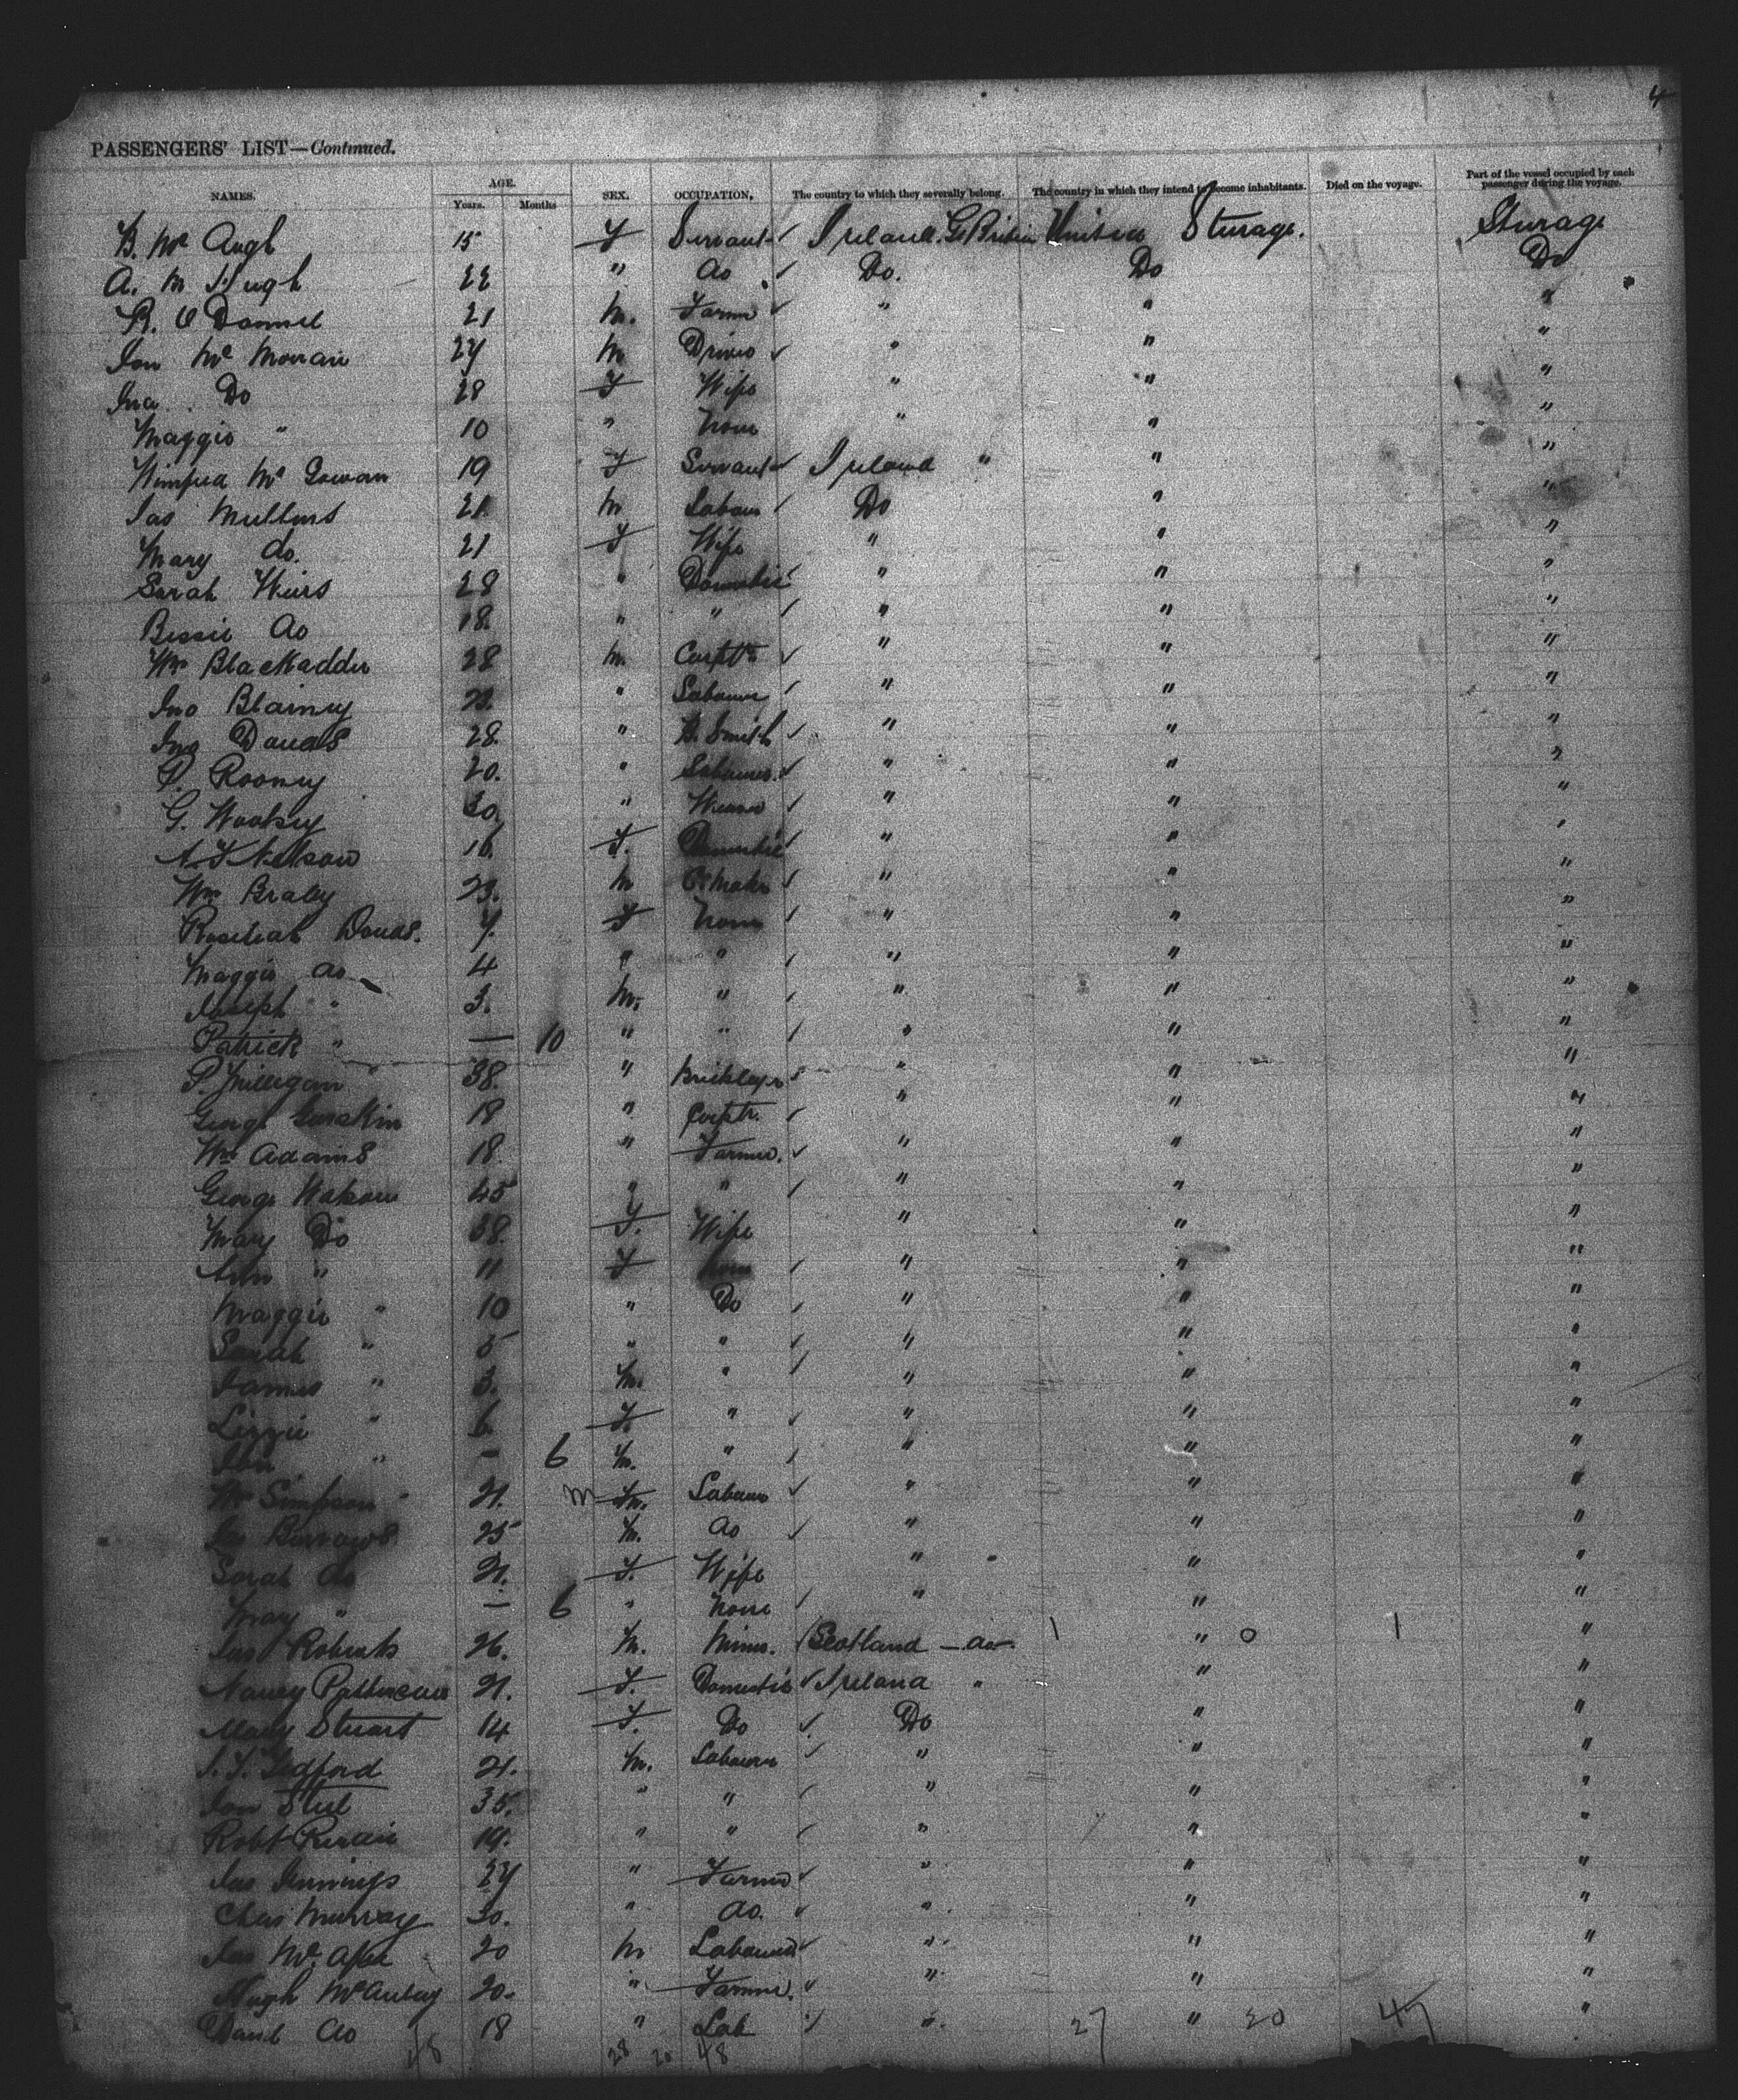 4
PASSENGERS' LIST—Continued.
NAMES. AGE. Years. Months SEX. OCCUPATION, The country to which they severally belong. The country in which they intend to become inhabitants. Died on the voyage. Part of the vessel occupied by each passenger during the voyage.
B. Mc Hugh 15 F Servant Ireland. G. Britain United Sturage. Sturage
A. Mc Hugh 22 " do Do. Do Do
R. O Donnel 21 M. Farmer " " "
Jon Mc Morran 27 M Driver " " "
Do 28 F Wife " " "
Maggie " 10 " None " " "
Winifred Mc Gowan 19 F Servant Ireland " " "
Jas Mullins 21 M Labour Do " "
Mary do. 21 F Wife " " "
Sarah Weirs 28 " Domestic " " "
Bessie do 18. " " " " "
Wm Blackadder 28 M. Carptr " " "
Jno Blainey 23. " Labourer " " "
Jno Douds 28. " B. Smith " " "
P. Rooney 20. " Labourer. " " "
G. Wooksey 30. " Weaver " " "
Nelson 16. F. Domestic " " "
Wm Braley 23. M " " "
Douds. 7. F None " " "
Maggie do 4 " " " " "
Joseph " 3. M. " " " "
Patrick " — 10 " " " " "
P. Milligan 38. " Bricklayer " " "
George 18 " Carptr. " " "
Wm Adams 18. " Farmer. " " "
George Watson 45 " " " " "
Mary Do 38. F. Wife " " "
Ann " 11 F None " " "
Maggie " 10 " Do " " "
Sarah " 5 " " " " "
James " 3. M. " " " "
Lizzie " 6. F. " " " "
" – 6 M. " " " "
Wm Simpson 21. M M. Labour " " "
Jas Burrows 25 M. do " " "
Sarah do 21. F. Wife " " "
Mary " — 6 " None " " "
Jas Roberts 26. M. Miner. Scotland — do — 1 " 0 1 "
Nancy Patterson 21. F. Domestic Ireland " " "
Mary Stuart 14 F. Do Do " "
Gedford 21. M. Labourer " " "
Jon Steel 35. " " " " "
Robt 19. " " " " "
Jas Jennings 27 " Farmer " " "
Chas Murray 30. " do. " " "
Jas Mc Afee 20 M Labourer " " "
Hugh McAulay 20. " Farmer. " " "
David do 18 " Lab " 27 " 20 47 "
48 28 20 48